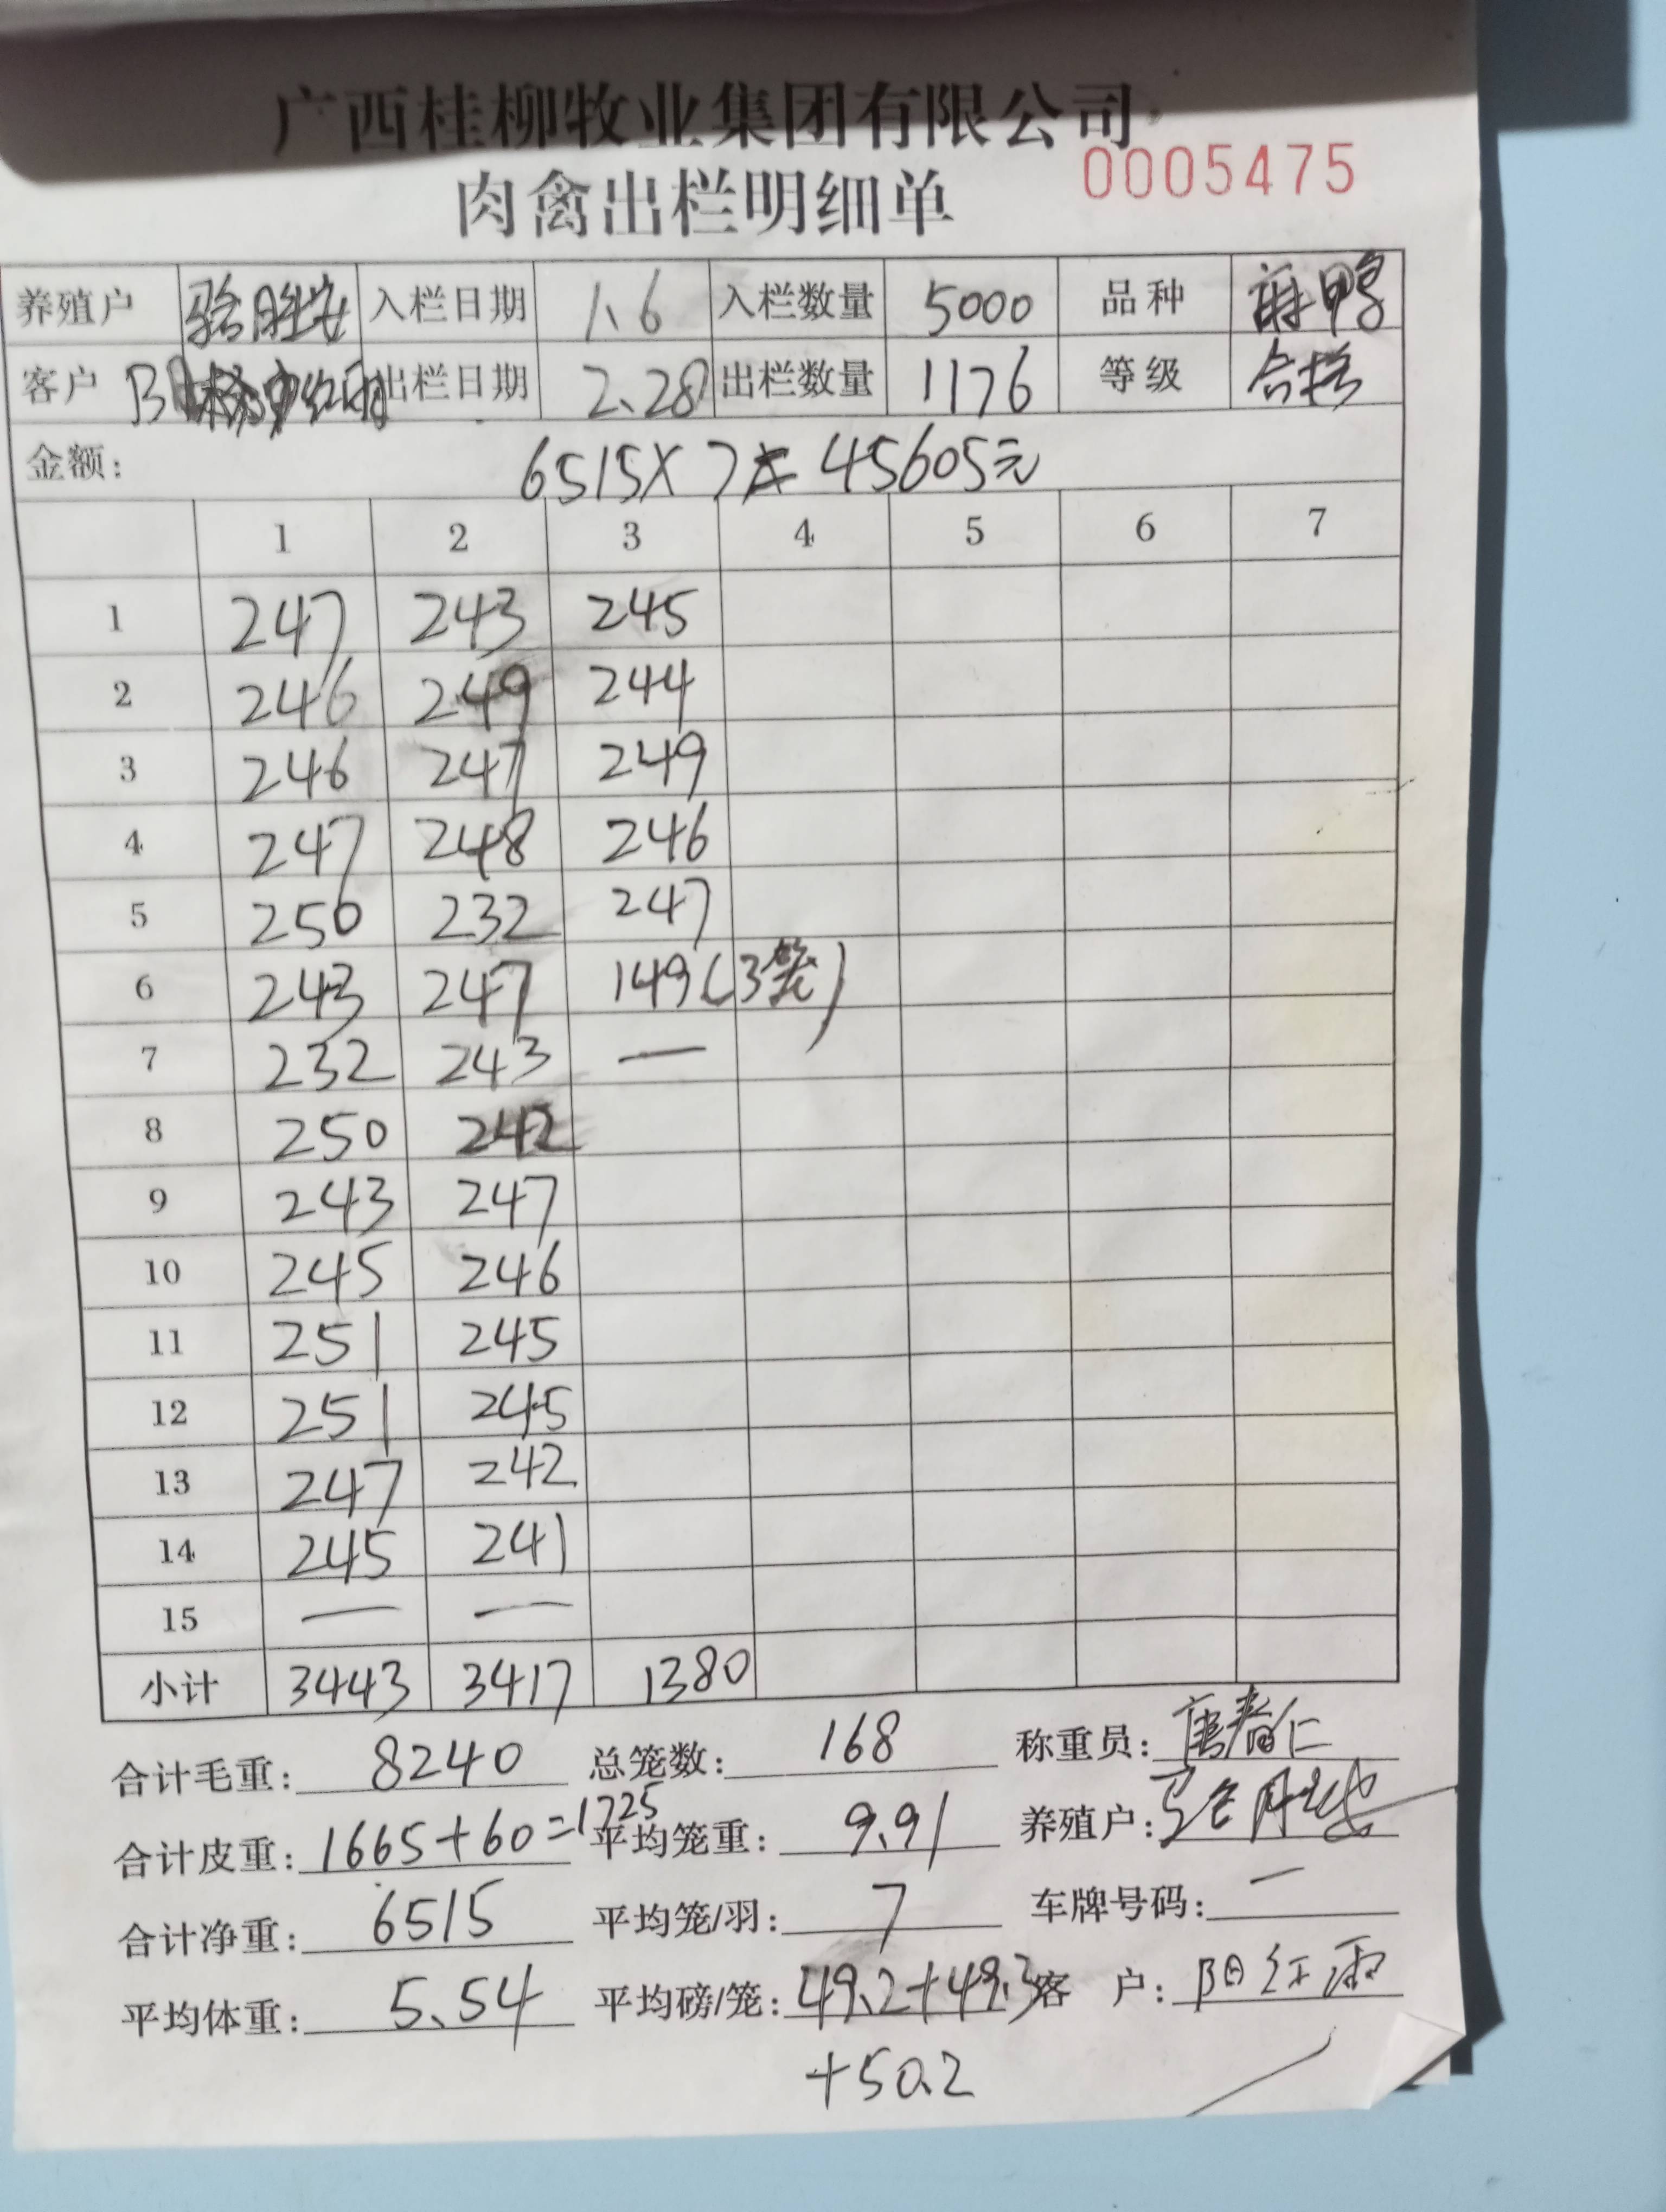 广西桂柳牧业集团有限公司
肉禽出栏明细单 0005475
养殖户 入栏日期 1.6 入栏数量 5000 品种 麻鸭
客户 出栏日期 2.28 出栏数量 1176 等级 合格
金额: 6515×7=45605元
1 2 3 4 5 6 7
1 247 243 245
2 246 249 244
3 246 247 249
4 247 248 246
5 250 232 247
6 243 247 149(3笼)
7 232 243 —
8 250 242
9 243 247
10 245 246
11 251 245
12 251 245
13 247 242
14 245 241
15 — —
小计 3443 3417 1380
合计毛重: 8240 总笼数: 168 称重员: 唐春仁
合计皮重: 1665+60=1725 平均笼重: 9.91 养殖户:
合计净重: 6515 平均笼/羽: 7 车牌号码: —
平均体重: 5.54 平均磅/笼: 49.2+49.3 客户: 阳红雨
+50.2